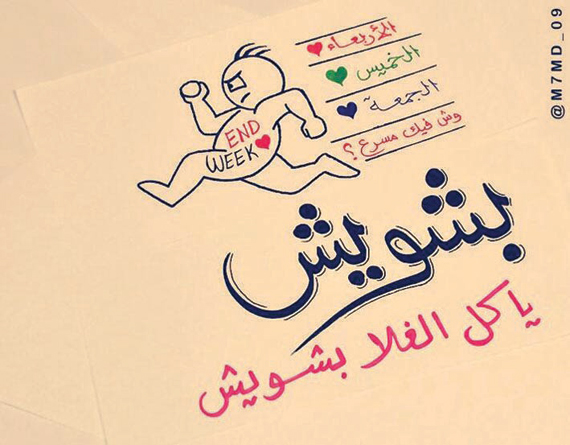 الأربعاء
الخميس
الجمعة
وش فيك مسرع ؟
END
WEEK
بشويش
يا كل الغلا بشويش
@M7MD_09